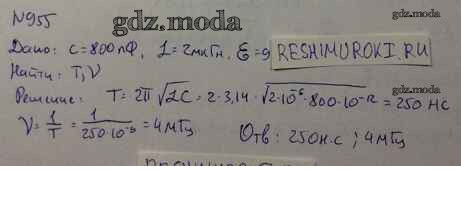 N955
gdz.moda
gdz.moda
Дано: C=800пФ, L=2мкГн, ε=9
RESHIMUROKI.RU
Найти: T, ν
Решение: T=2π√LC=2·3,14·√2·10⁻⁶·800·10⁻¹²=250 нс
ν=1/T=1/250·10⁻⁹=4мГц
Отв: 250нс; 4мГц
gdz.moda